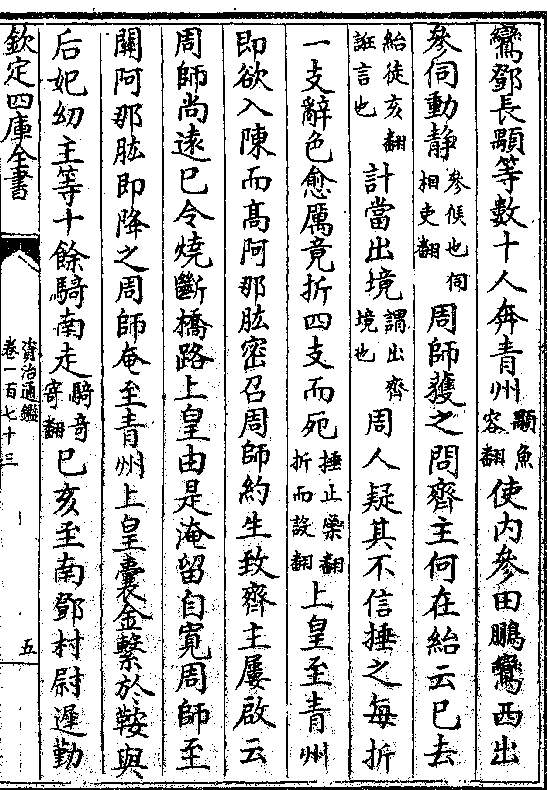 鸞鄧長顒等數十人奔青州顒魚容翻使内參田鵬鸞西出
參伺動静參候也伺相吏翻周師獲之問齊主何在紿云已去
紿徒亥翻誑言也計當出境謂出齊境也周人疑其不信捶之每折
一支辭色愈厲竟折四支而死捶止橤翻折而設翻上皇至青州
即欲入陳而髙阿那肱密召周師約生致齊主屢啟云
周師尚遠已令燒斷橋路上皇由是淹留自寛周師至
關阿那肱即降之周師奄至青州上皇囊金繫於鞍與
后妃幼主等十餘騎南走騎奇寄翻己亥至南鄧村尉遲勤
欽定四庫全書
資治通鑑
卷一百七十三
五